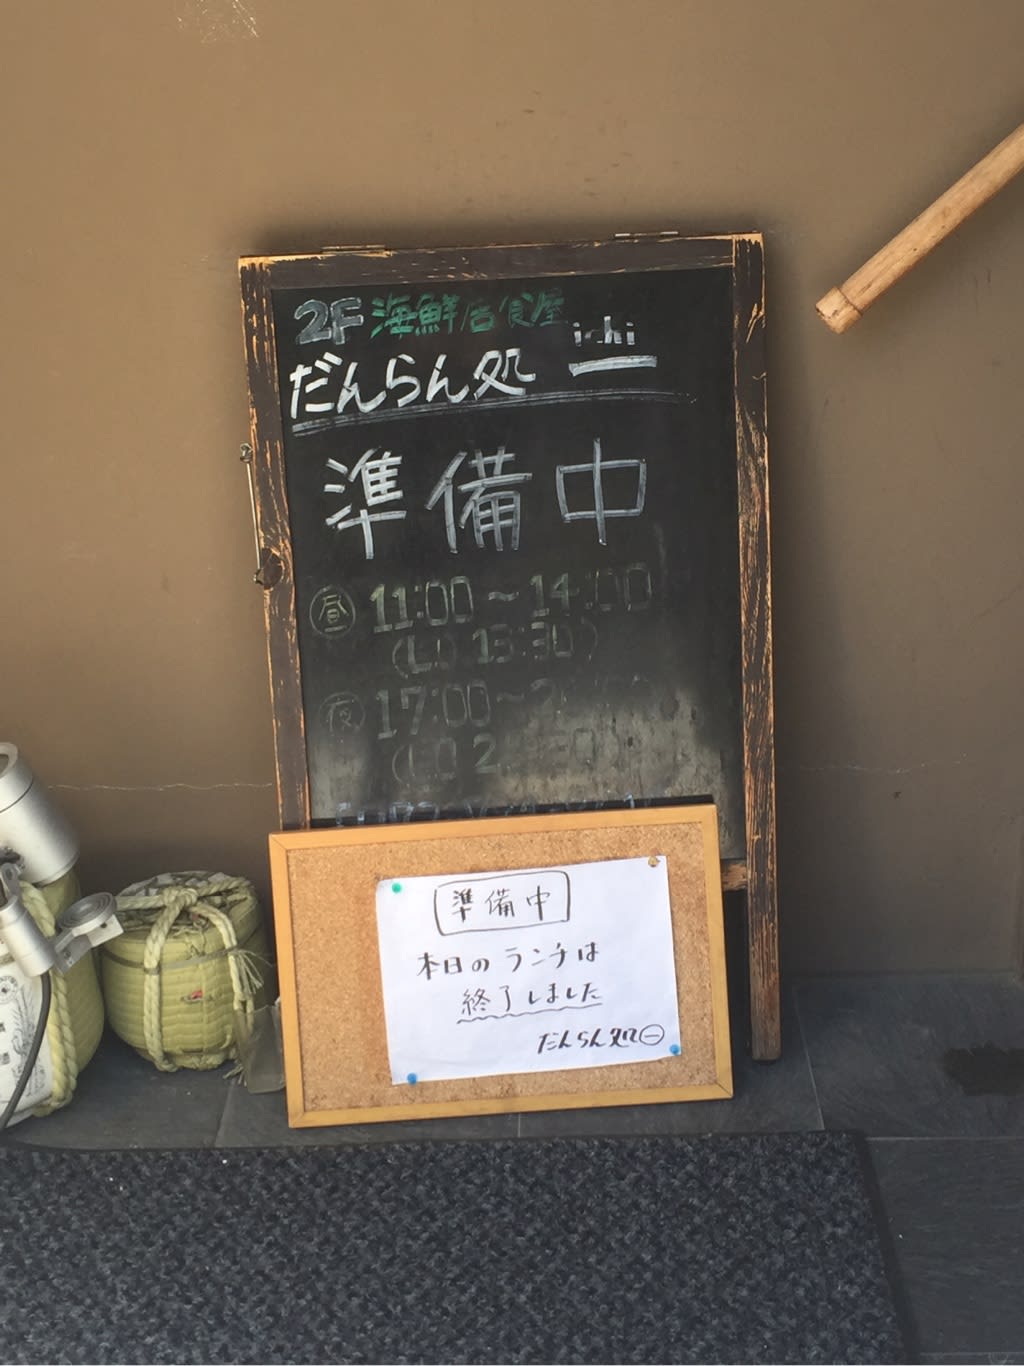 2F 海鮮居食屋
だんらん処 ichi 一
準備中
昼 11:00〜14:00
(LO 13:30)
夜 17:00〜
(LO
準備中
本日のランチは
終了しました
だんらん処㊀